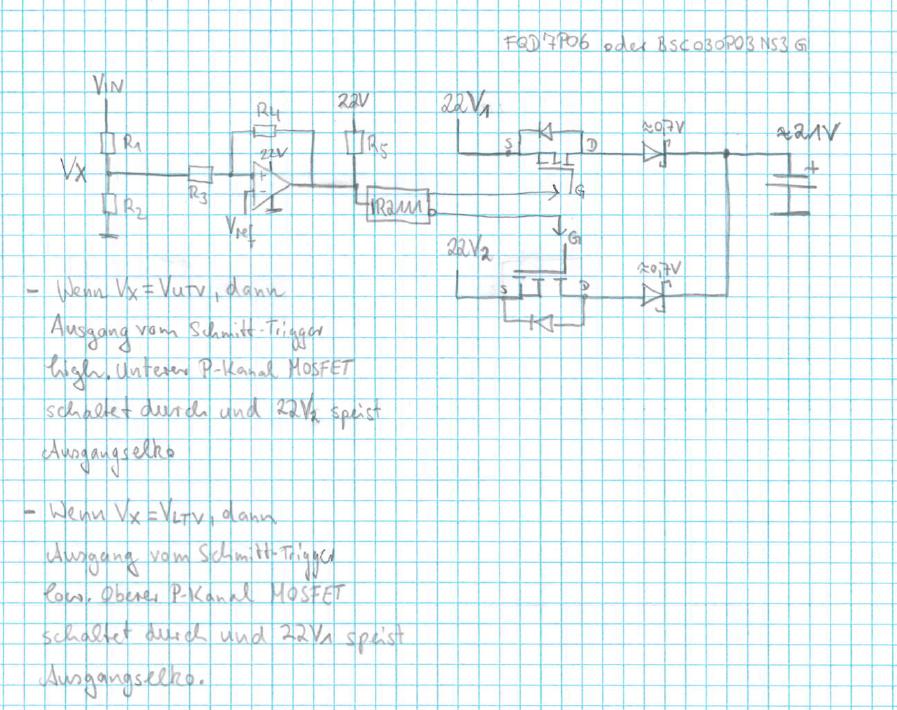 FQD7P06 oder BSC030P03NS3 G
VIN
R1
VX
R2
R3
R4
22V
+
-
Vref
22V
R5
IR2111
22V1
S
D
G
≈0,7V
≈21V
+
22V2
G
S
D
≈0,7V
- Wenn VX = VUTV, dann
Ausgang vom Schmitt-Trigger
high. Unterer P-Kanal MOSFET
schaltet durch und 22V2 speist
Ausgangselko
- Wenn VX = VLTV, dann
Ausgang vom Schmitt-Trigger
low. Oberer P-Kanal MOSFET
schaltet durch und 22V1 speist
Ausgangselko.